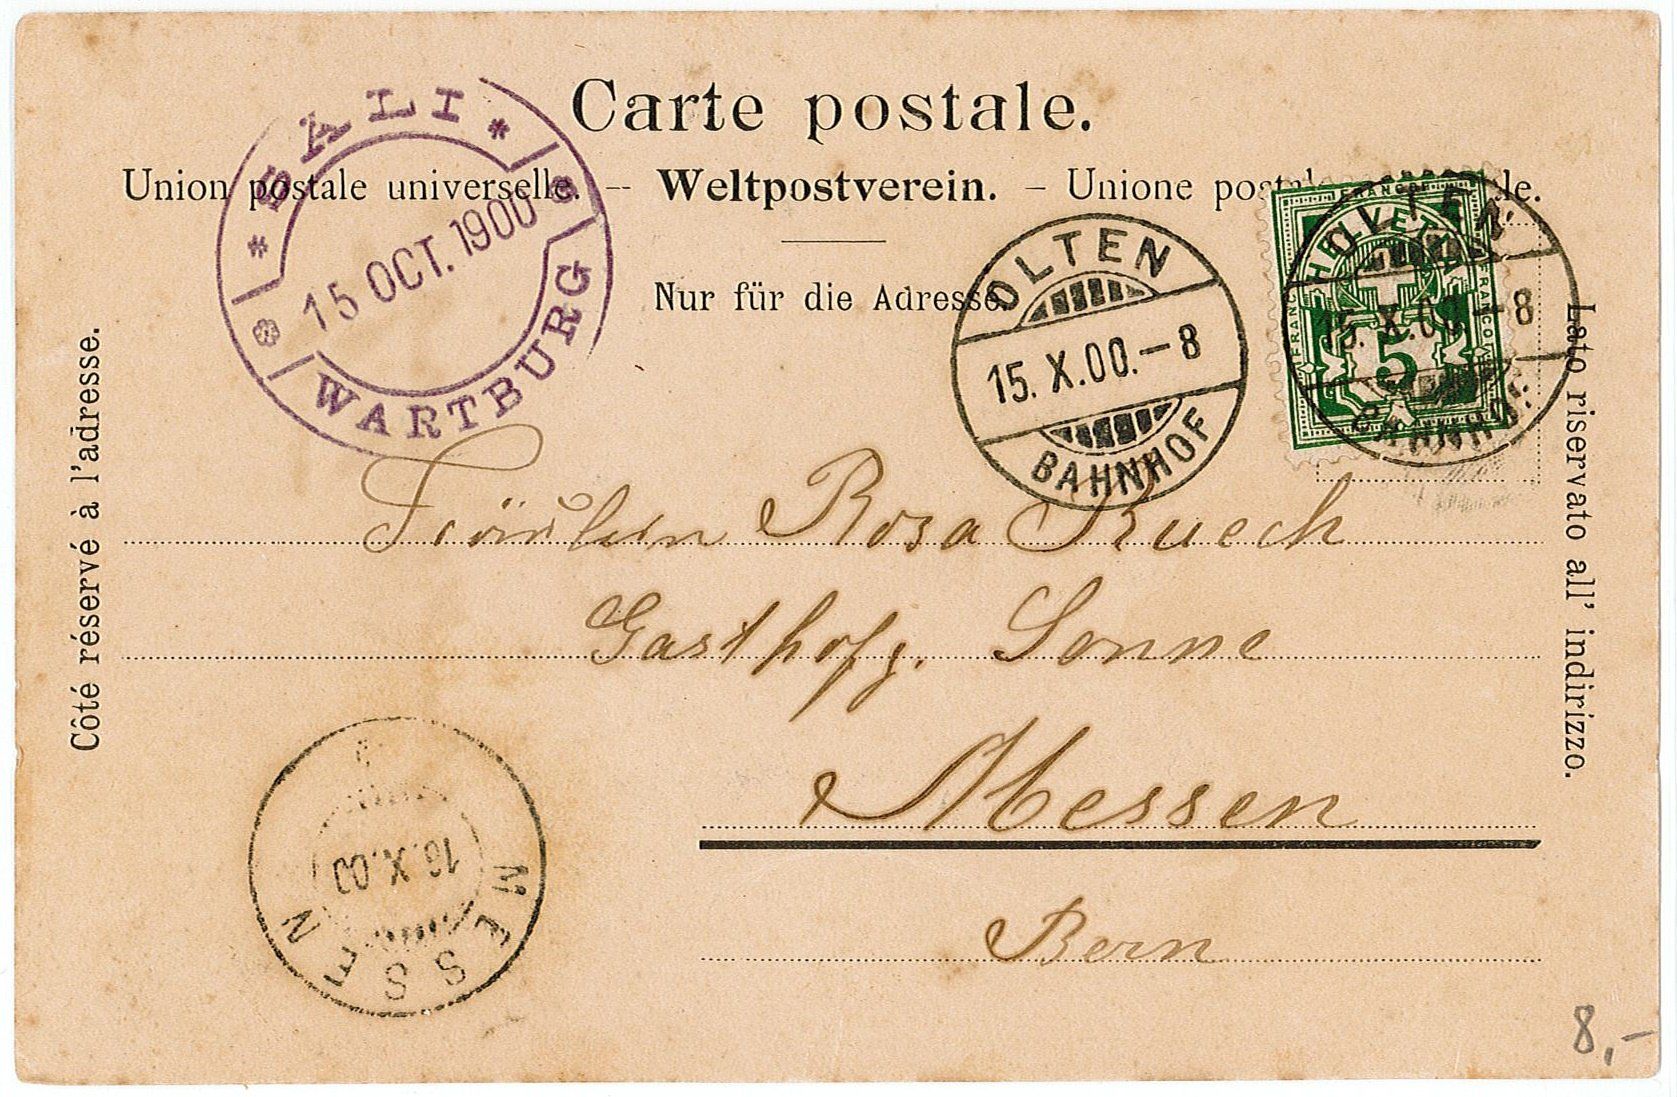 Carte postale.
Union postale universelle. – Weltpostverein. – Unione
Nur für die Adresse.
Côté réservé à l'adresse.
Lato riservato all' indirizzo.
* SALI *
15 OCT. 1900
WARTBURG
OLTEN
15. X. 00. – 8
BAHNHOF
HELVETIA
FRANCO
FRANCO
FRANCO
5
OLTEN
15. X. 00 – 8
BAHNHOF
Fräulein Rosa Ruech
Gasthofz. Sonne
Messen
Bern
MESSEN
16. X. 00
8,–